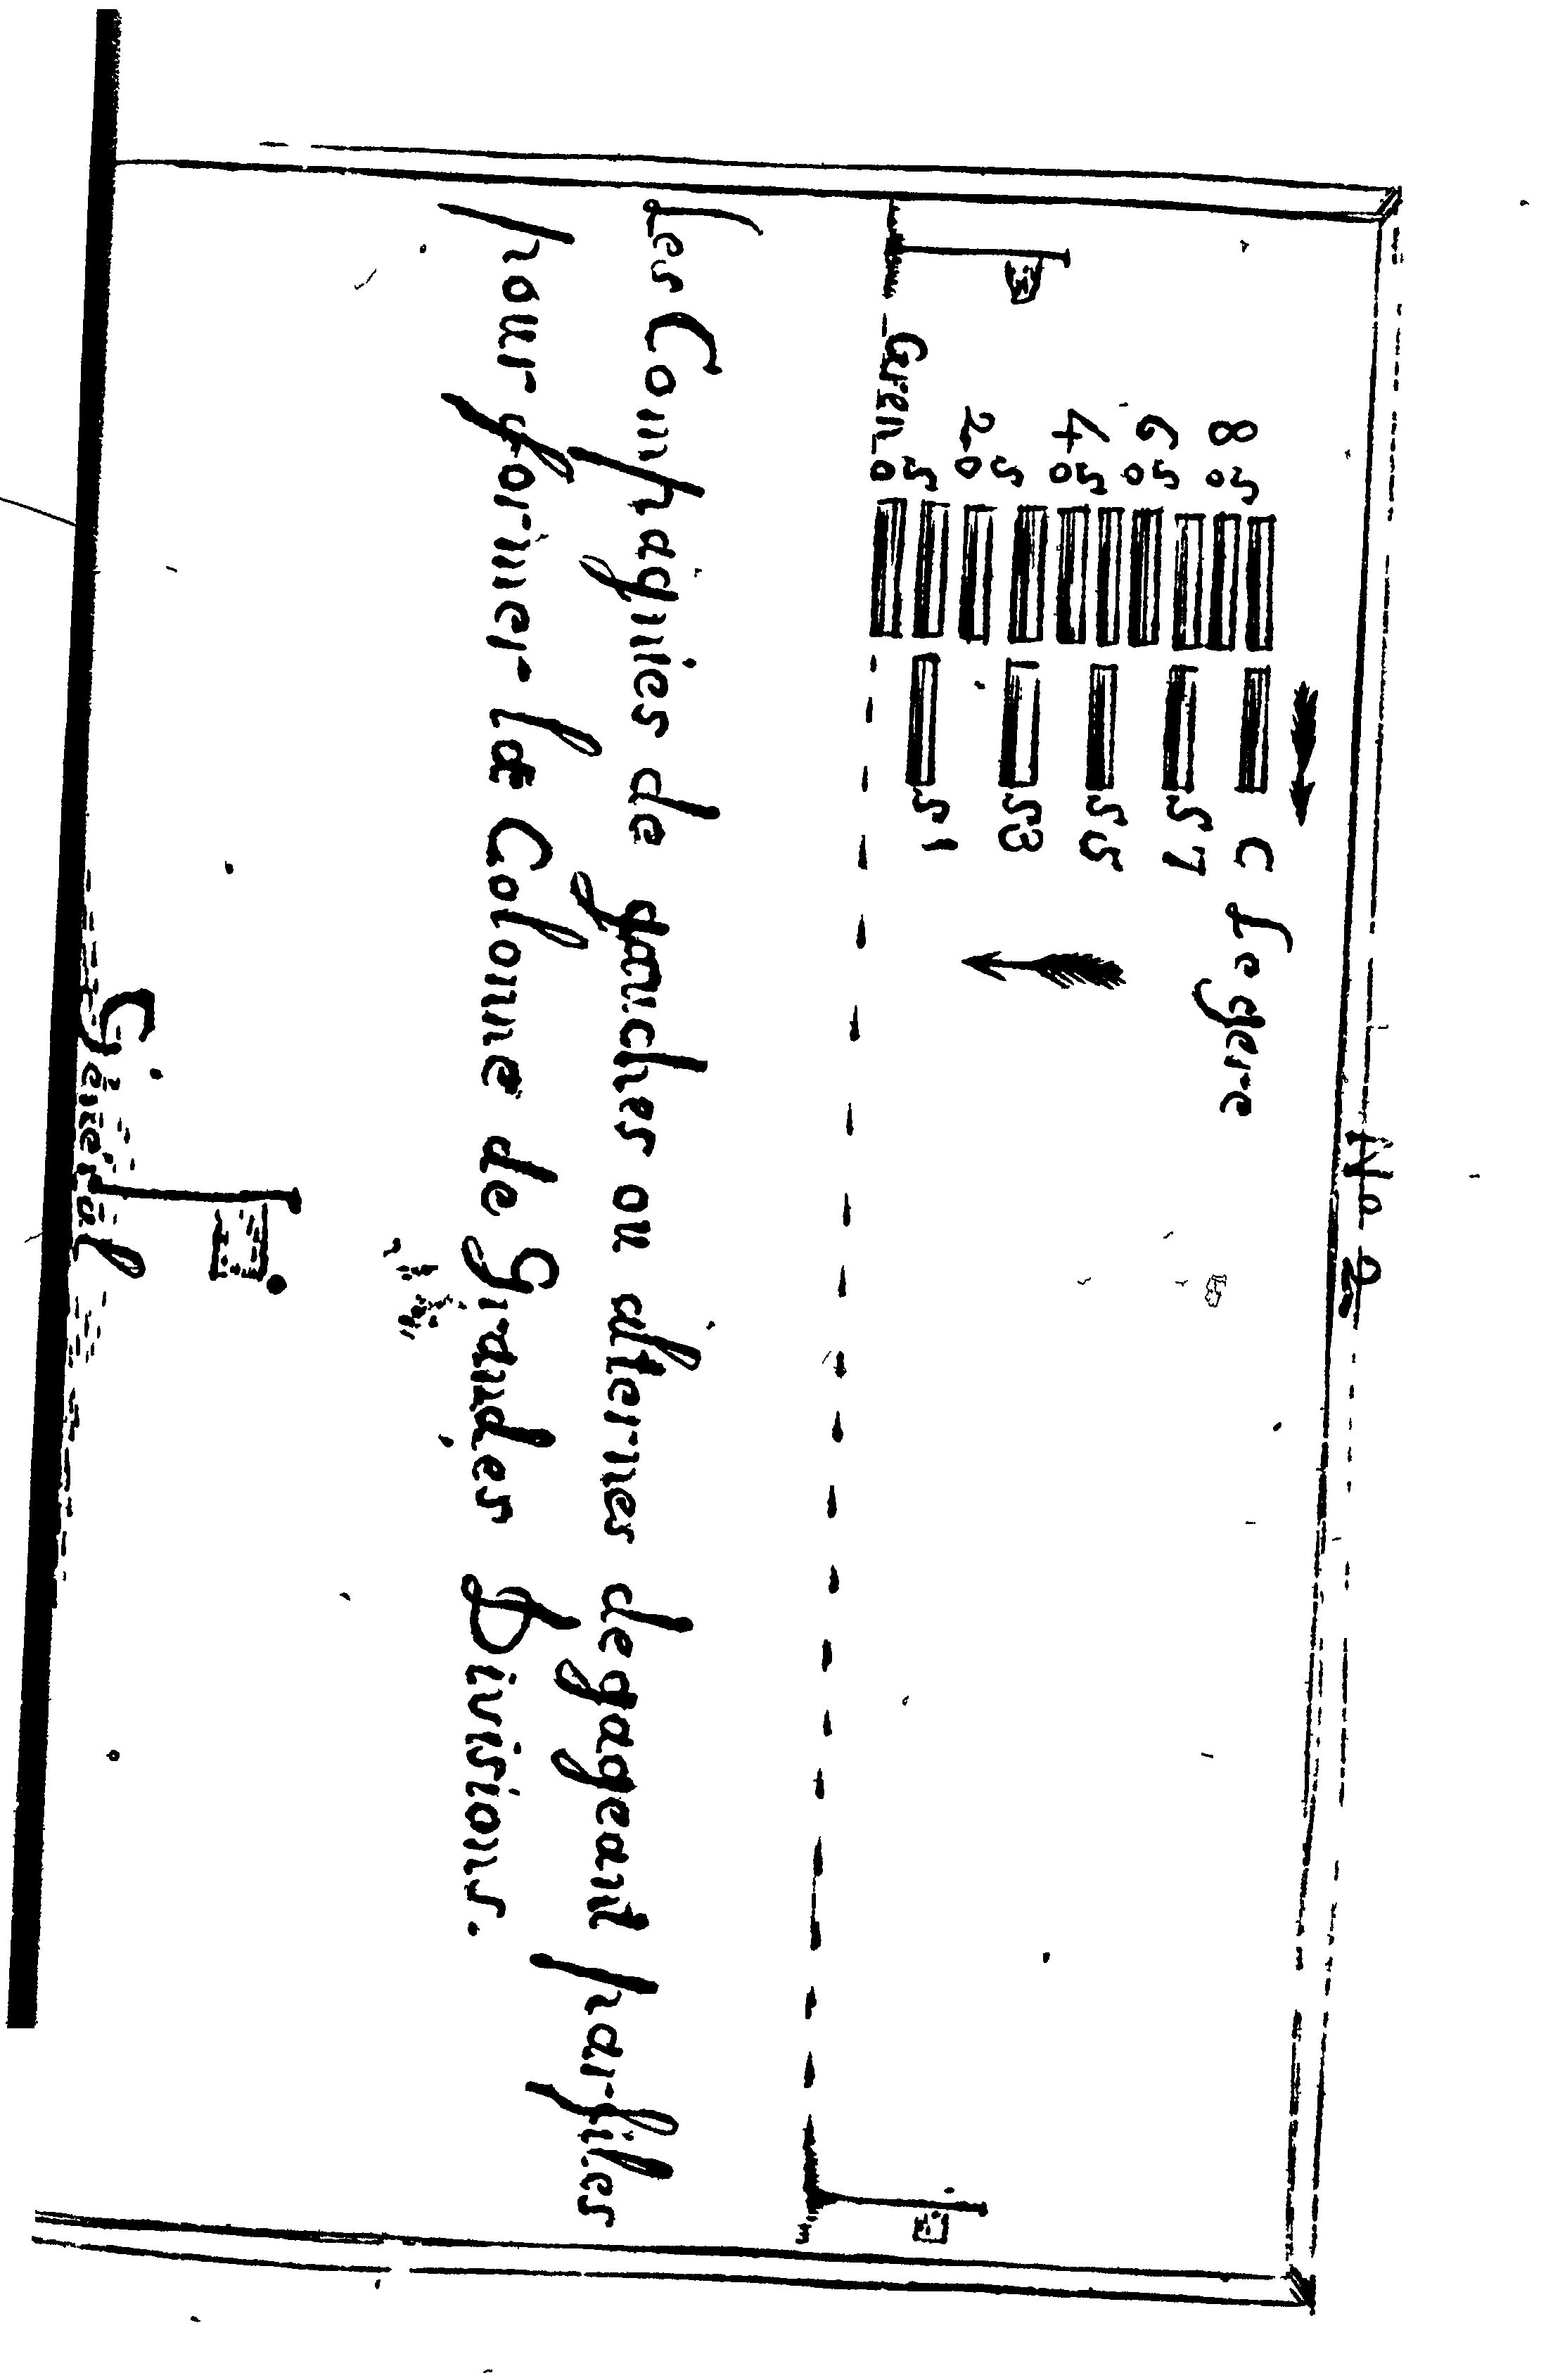 No 2
5 C Legere
8 0
5 57
6 0
5 55
4 0
5 53
2 0
5 51
Gren 0
Les Compagnies de gauches ou alternes degageant par files
pour former la Colonne de Grandes Divisions.
General